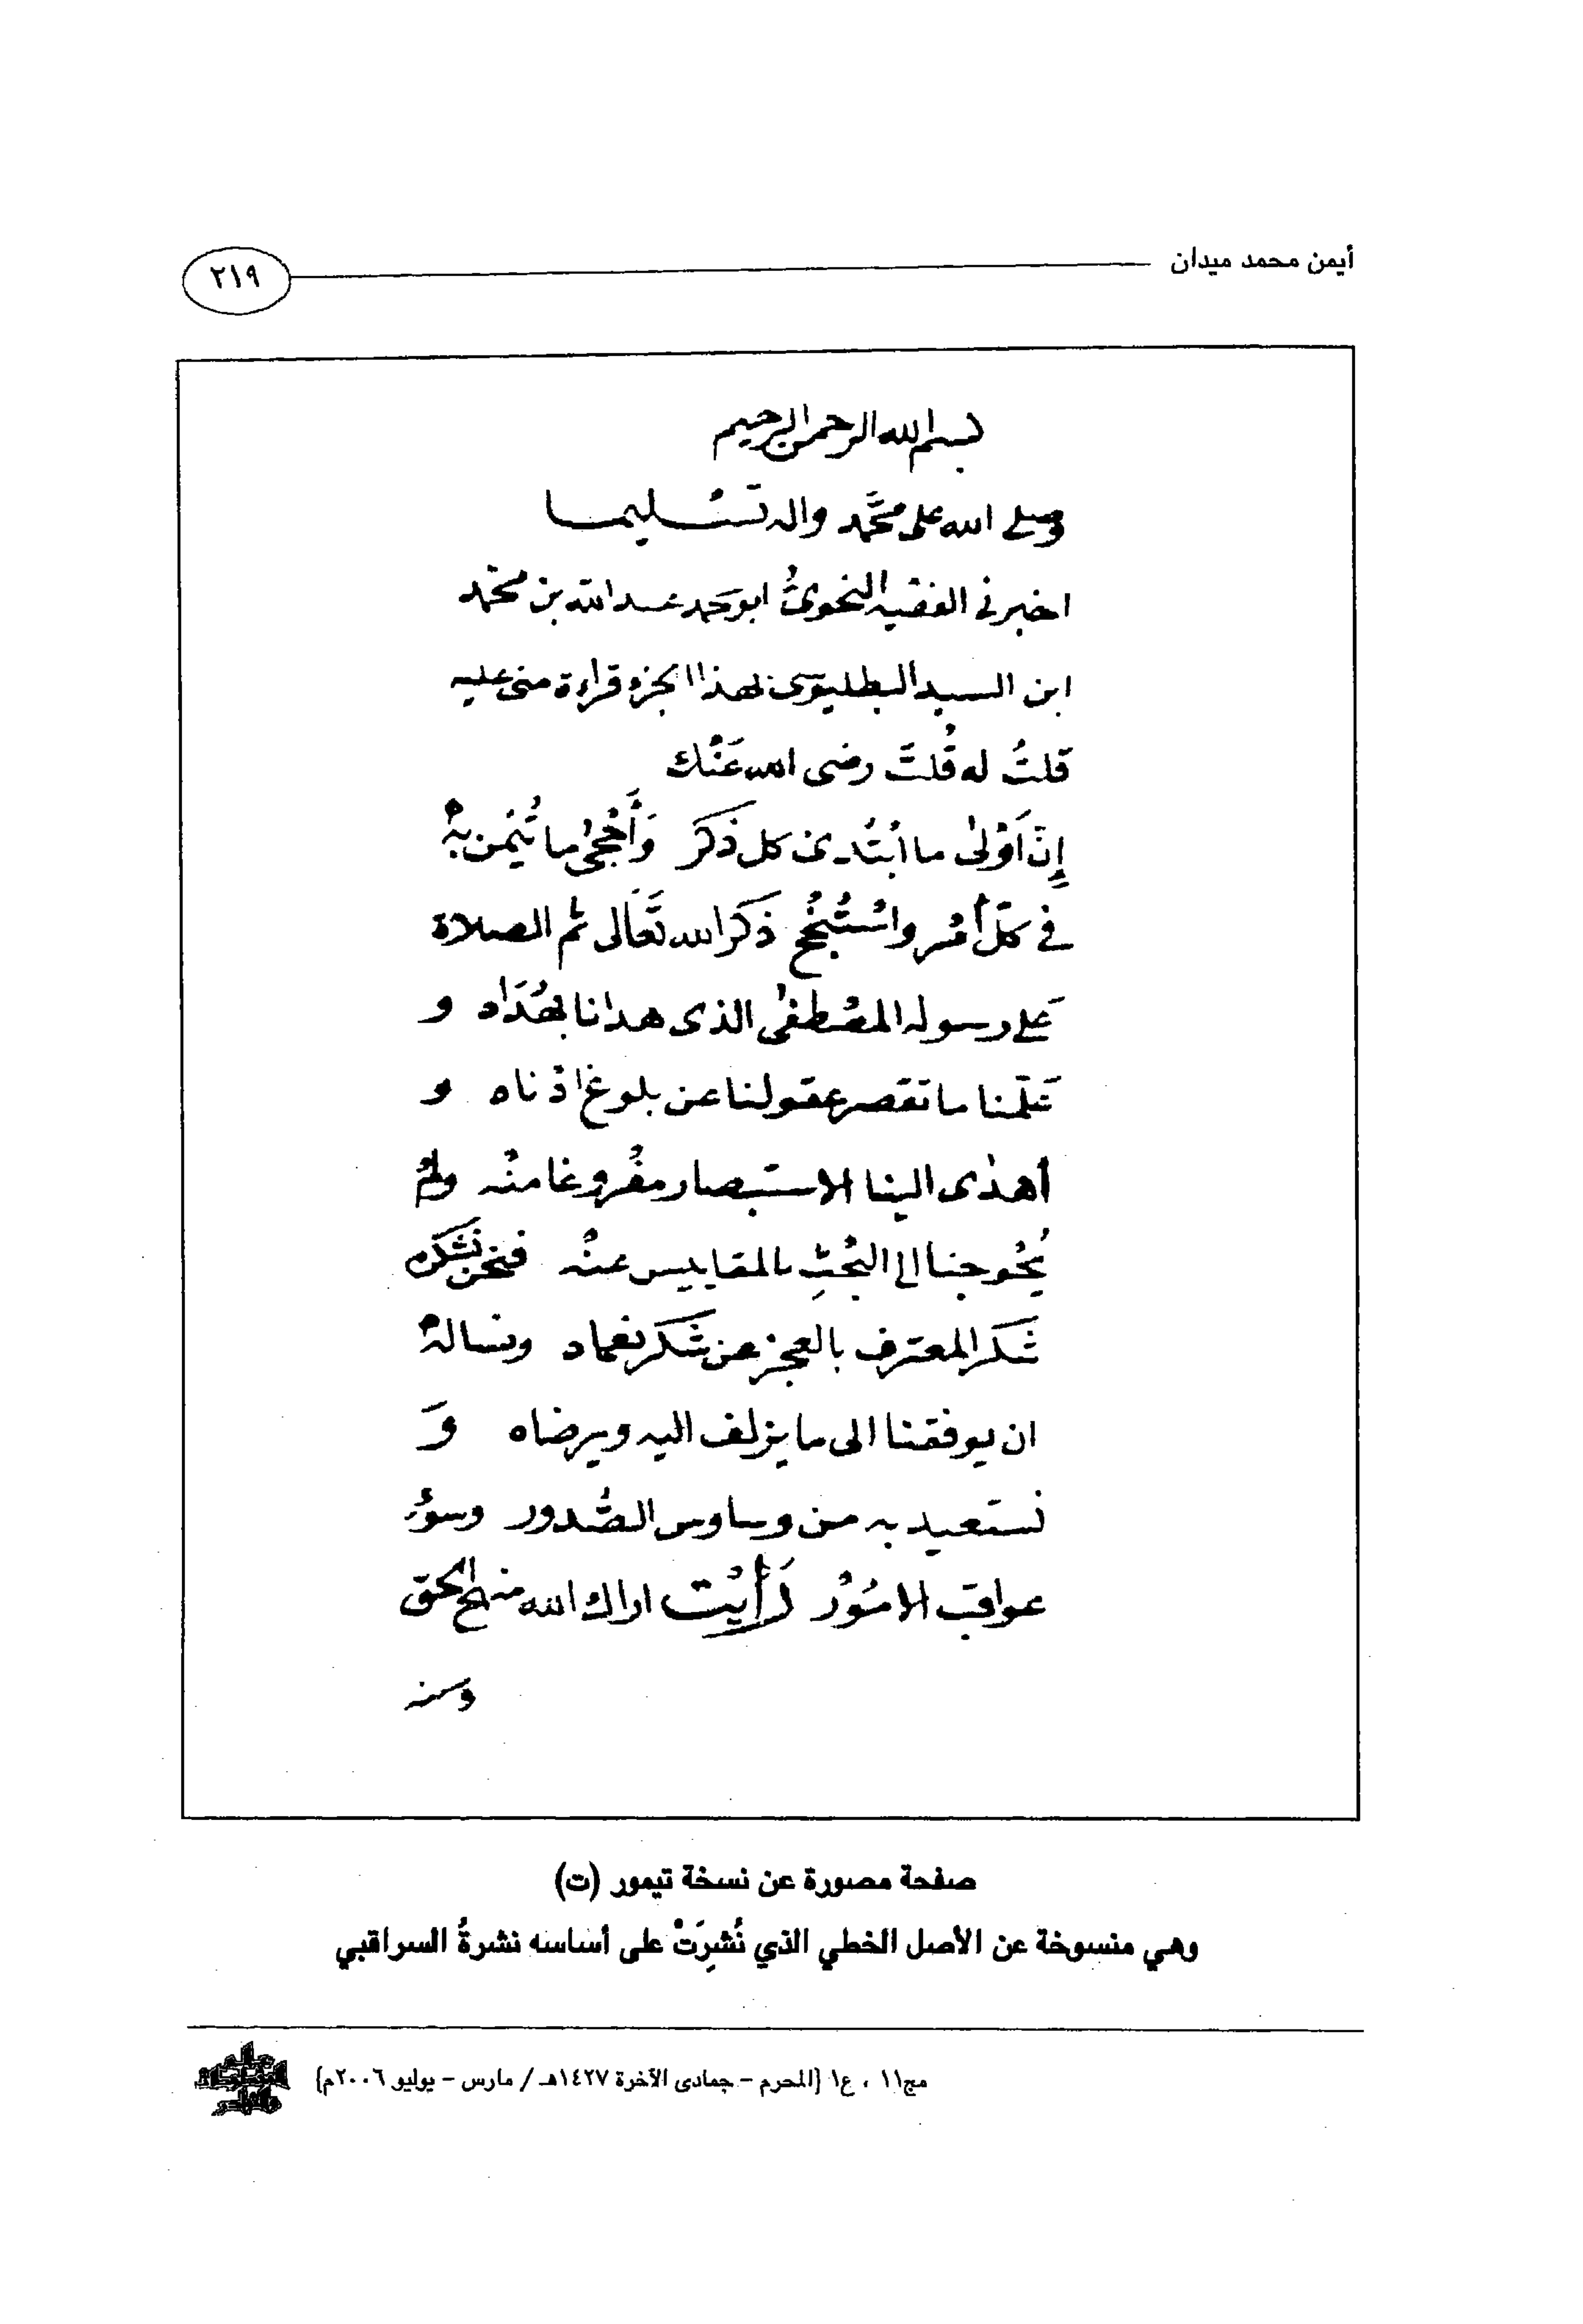 أيمن محمد ميدان
٢١٩
بسم الله الرحمن الرحيم
وصلى الله على محمَّد واله تسْليما
اخبرنى الفقيه النحوىُّ ابو محمد عبد الله بن محمد
ابن السيد البطليوسى بهذا الجزء قراءة منى عليه
قلتُ له قُلتَ رضى الله عَنْك
إِنّ اَوْلى ما ابْتُدئ كل ذَكَر وَأَحْجى ما تُيُمن بهْ
فى كلّ أمْر واسْتُنْجُح ذَكَر الله تَعَالى ثم الصلاة
عَلى رسوله المصْطفى الذى هدانا بهُدَاه و
عَلّمنا ما تقصر عقولنا عن بلوغ ادْناه و
أهدى الينا الاستبصار مفْروغا منْه ولمْ
يُحْوجنا الى البْحثِ بالمقاييس عنْه فنحن نَشكره
شَكر المعترف بالعجز عن شَكر نعماه ونسالهْ
ان يوفقنا الى ما يزلف اليه ويرضاه وَ
نستعيد به من وساوس الصُّدور وسوْء
عواقب الامُوْر رَأَيْت اراك الله منهج الحق
وسنه
صفحة مصورة عن نسخة تيمور (ت)
وهي منسوخة عن الأصل الخطي الذي نُشرَتْ على أساسه نشرةُ السراقبي
مج١١ ، ع١ (المحرم - جمادى الآخرة ١٤٢٧هـ / مارس - يوليو ٢٠٠٦م)